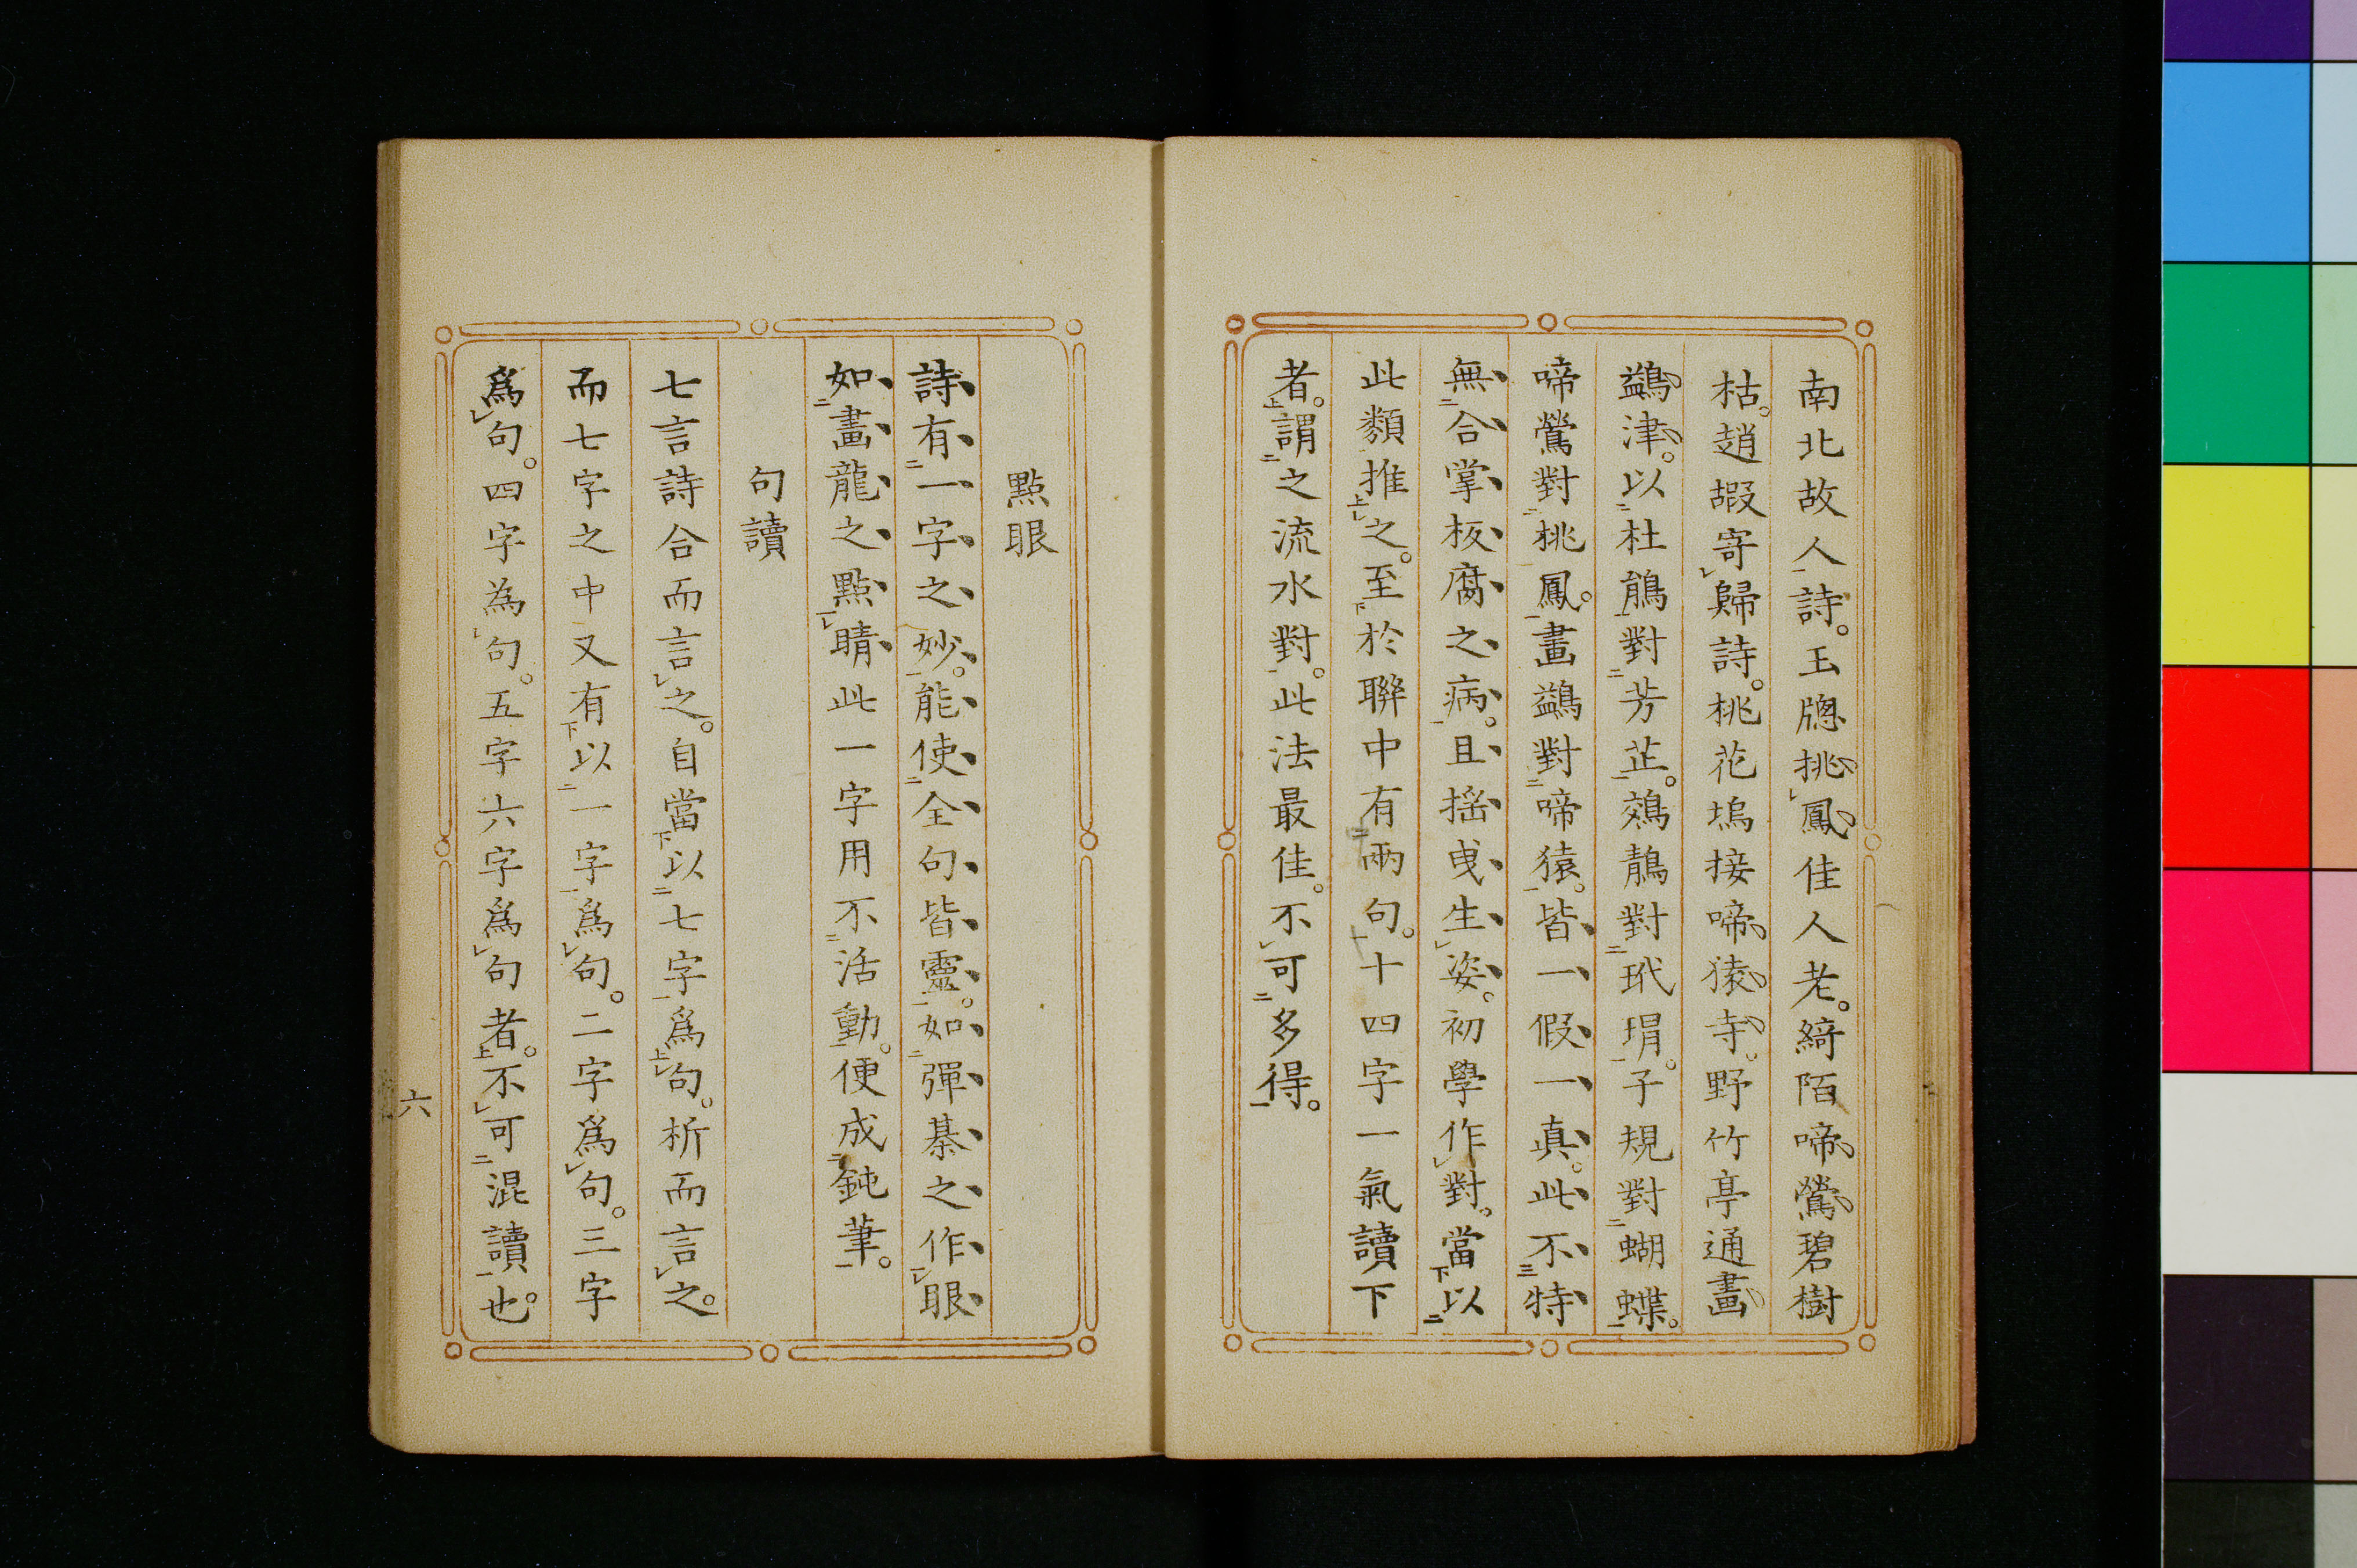 南北故人詩。玉牕挑鳳佳人老。綺陌啼鶯碧樹
枯。趙嘏寄歸詩。桃花塢接啼猿寺。野竹亭通畫
鷁津。以杜鵑對芳芷。鵁鶄對玳瑁。子規對蝴蝶。
啼鶯對挑鳳。畫鷁對啼猿。皆一假一真。此不特
無合掌板腐之病。且搖曳生姿。初學作對。當以
此類推之。至於聯中有兩句。十四字一氣讀下
者。謂之流水對。此法最佳。不可多得。
點眼
詩有一字之妙。能使全句皆靈。如彈棊之作眼
如畫龍之點睛此一字用不活動。便成鈍筆。
句讀
七言詩合而言之。自當以七字爲句。析而言之。
而七字之中又有以一字爲句。二字爲句。三字
爲句。四字為句。五字六字爲句者。不可混讀也。
六